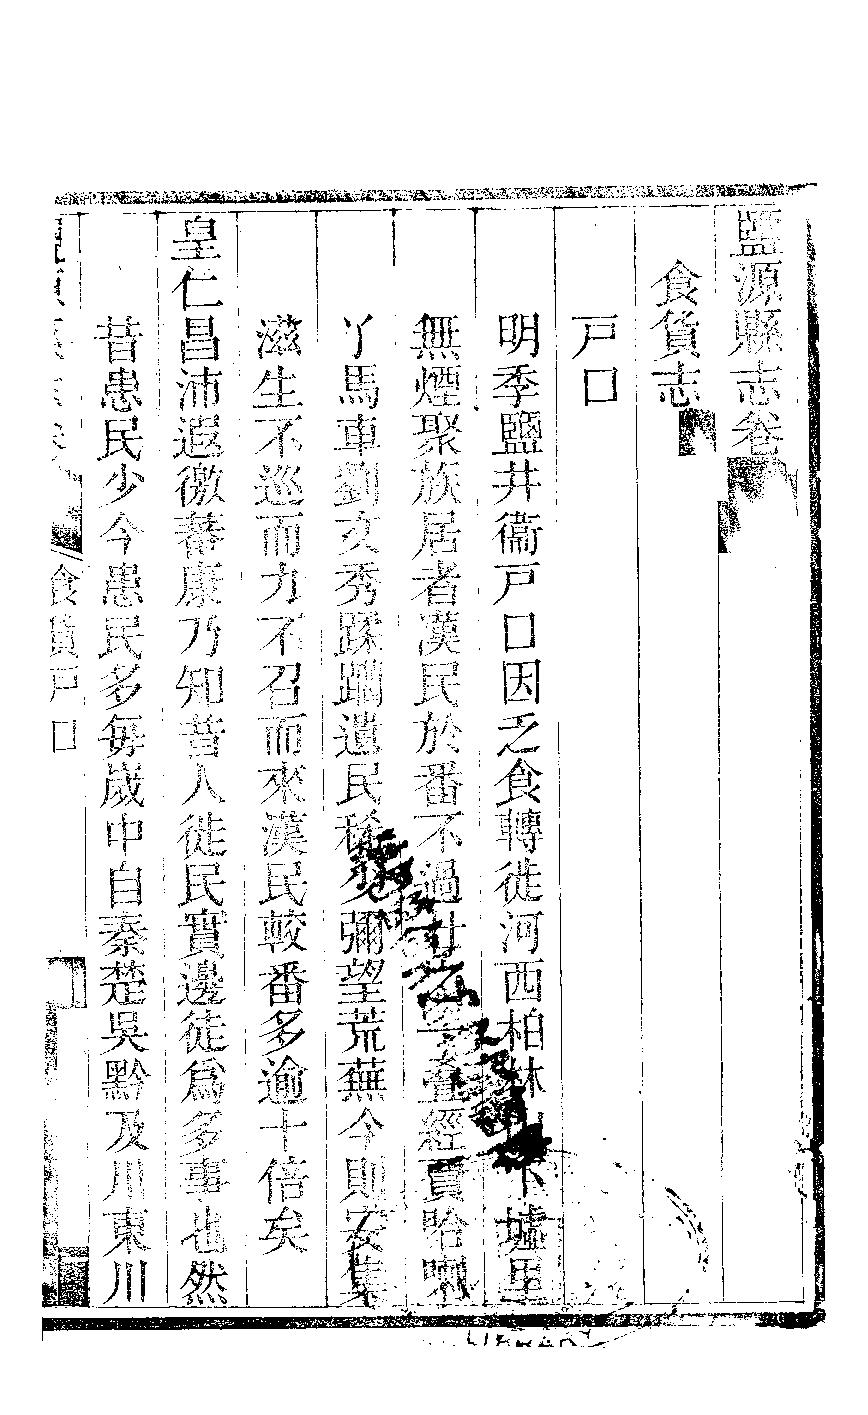 鹽源縣志卷
食貨志
戸口
明季鹽井衞戸口因乏食轉徙河西柏林山下墟里
無煙聚族居者漢民於番不過廿之一疊經賈哈喇
丫馬車劉文秀蹂躪遺民稀少彌望荒蕪今則安集
滋生不巡而力不召而來漢民較番多逾十倍矣
皇仁昌沛遐徼蕃康乃知昔人徙民實邊徒爲多事也然
昔患民少今患民多每歲中自秦楚吳黔及川東川
食貨戸口